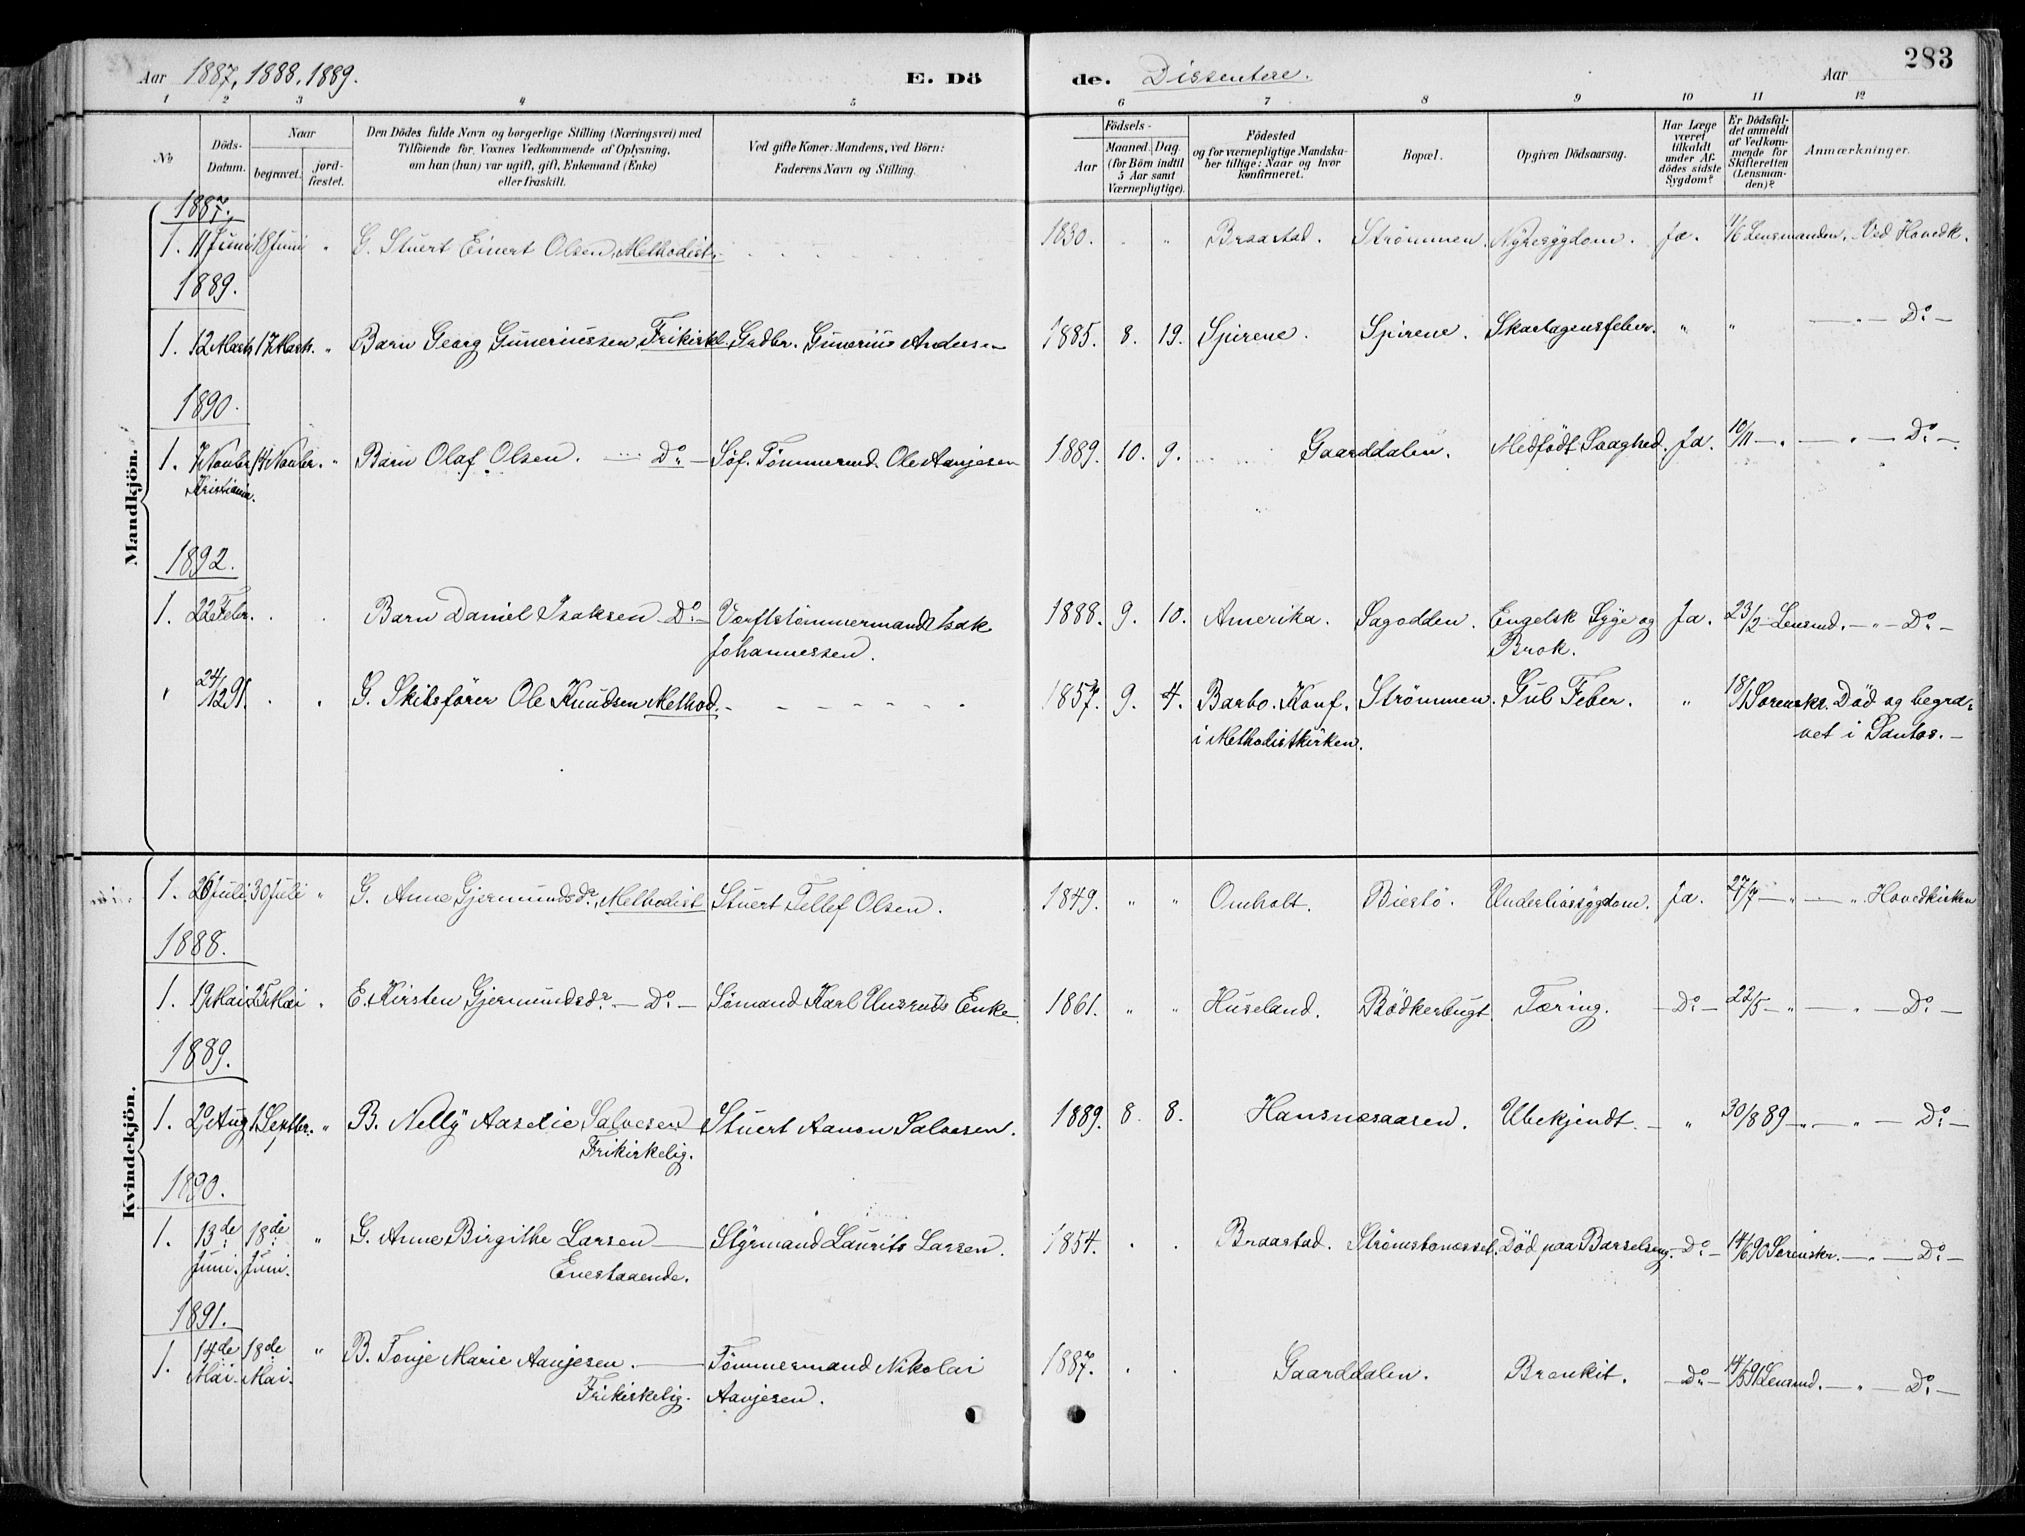 283
Aar 1887, 1888. 1889. E. Dö de. Dissentere. Aar
1 2 3 4 5 6 7 8 9 10 11 12
No
Döds-Datum.
Naar
begravet.
jord-fæstet.
Den Dödes fulde Navn og borgerlige Stilling (Næringsvei) med
Tilföiende for Voxnes Vedkommende af Oplysning,
om han (hun) var ugift, gift, Enkemand (Enke)
eller fraskilt.
Ved gifte Koner: Mandens, ved Börn:
Faderens Navn og Stilling.
Födsels-
Aar
Maaned. Dag.
(for Börn indtil
5 Aar samt
Værnepligtige).
Födested
og for værnepligtige Mandska-
ber tillige: Naar og hvor
konfirmeret.
Bopæl.
Opgiven Dödsaarsag.
Har Læge
været
tilkaldt
under Af-
dödes sidste
Sygdom?
Er Dödsfal-
det anmeldt
af Vedkom-
mende for
Skifteretten
(Lensman-
den)?
Anmærkninger.
Mandkjön.
1887.
1. 11 Juni 18 Juni " G. Stuert Einert Olsen, Methodist. 1830. " " Braastad. Strömmen. Nyresygdom. Ja. Lensmanden. - Ved Hovedk.
1889.
1. 12 Marts 17 Marts. " Barn Georg Guneriussen Frikirkl. Gadbr. Gunerius Andersen 1885. 8. 19. Spirene. Spirene. Skarlagensfeber. " " — " — Do —
1890.
1. 7 Novbr 14 Novbr. " Barn Olaf Olsen. — Do — Söf. Tömmermd. Ole Aanjesen 1889. 10. 9. Gaarddalen. Medfödt Svaghed. Ja. 10/11 — " — " — Do —
Kristiania.
1892.
1. 22 Febr. Barn Daniel Isaksen — Do — Værftstömmermand Isak 1888. 9. 10. Amerika. Sagodden. Engelsk Syge og Ja. 23/2 Lensmd. — " — Do —
Johannessen. Brok.
" 24/12 91. G. Skibsförer Ole Knudsen Method. 1857. 9. 4. Barbo. Konf. Strömmen. Gul Feber. " 18/1 Sorenskr. Död og begra-
i Methodistkirken. vet i Santos. —
Kvindekjön.
1. 26 Juli 30 Juli " G. Anne Gjermundsdr. Methodist Stuert Tellef Olsen. 1849. " " Omholt. Biestö. Underlivssygdom. Ja. 27/7 — " — " Hovedkirken
1888.
1. 19 Mai 25 Mai " E. Kirsten Gjermundsdr — Do — Sömand Karl Enke 1861. " " Huseland. Bödkerbugt. Tæring. — Do — 22/5 — " — " — Do —
1889.
1. 29 Aug 1 Septbr. " B. Nelly Aaselie Salvesen Stuert Aanon Salvesen. 1889. 8. 8. Hansnesaasen. Ubekjendt. — " 30/8 89 — " — " — Do —
Frikirkelig.
1890.
1. 13de 18de " G. Anne Birgithe Larsen — Styrmand Laurits Larsen. 1854. " " Braastad. Strömsbonesset. Död paa Barselseng. — Do — 14/6 90 Sorenskr. — " — Do —
Juni. Juni. Enestaaende.
1891.
1. 14de 18de " B. Tonje Marie Aanjesen. — Tömmermand Nikolai 1887. " " Gaarddalen. Bronkit. — Do — 14/5 91 Lensmd. — " — Do —
Mai. Mai. Frikirkelig. Aanjesen.